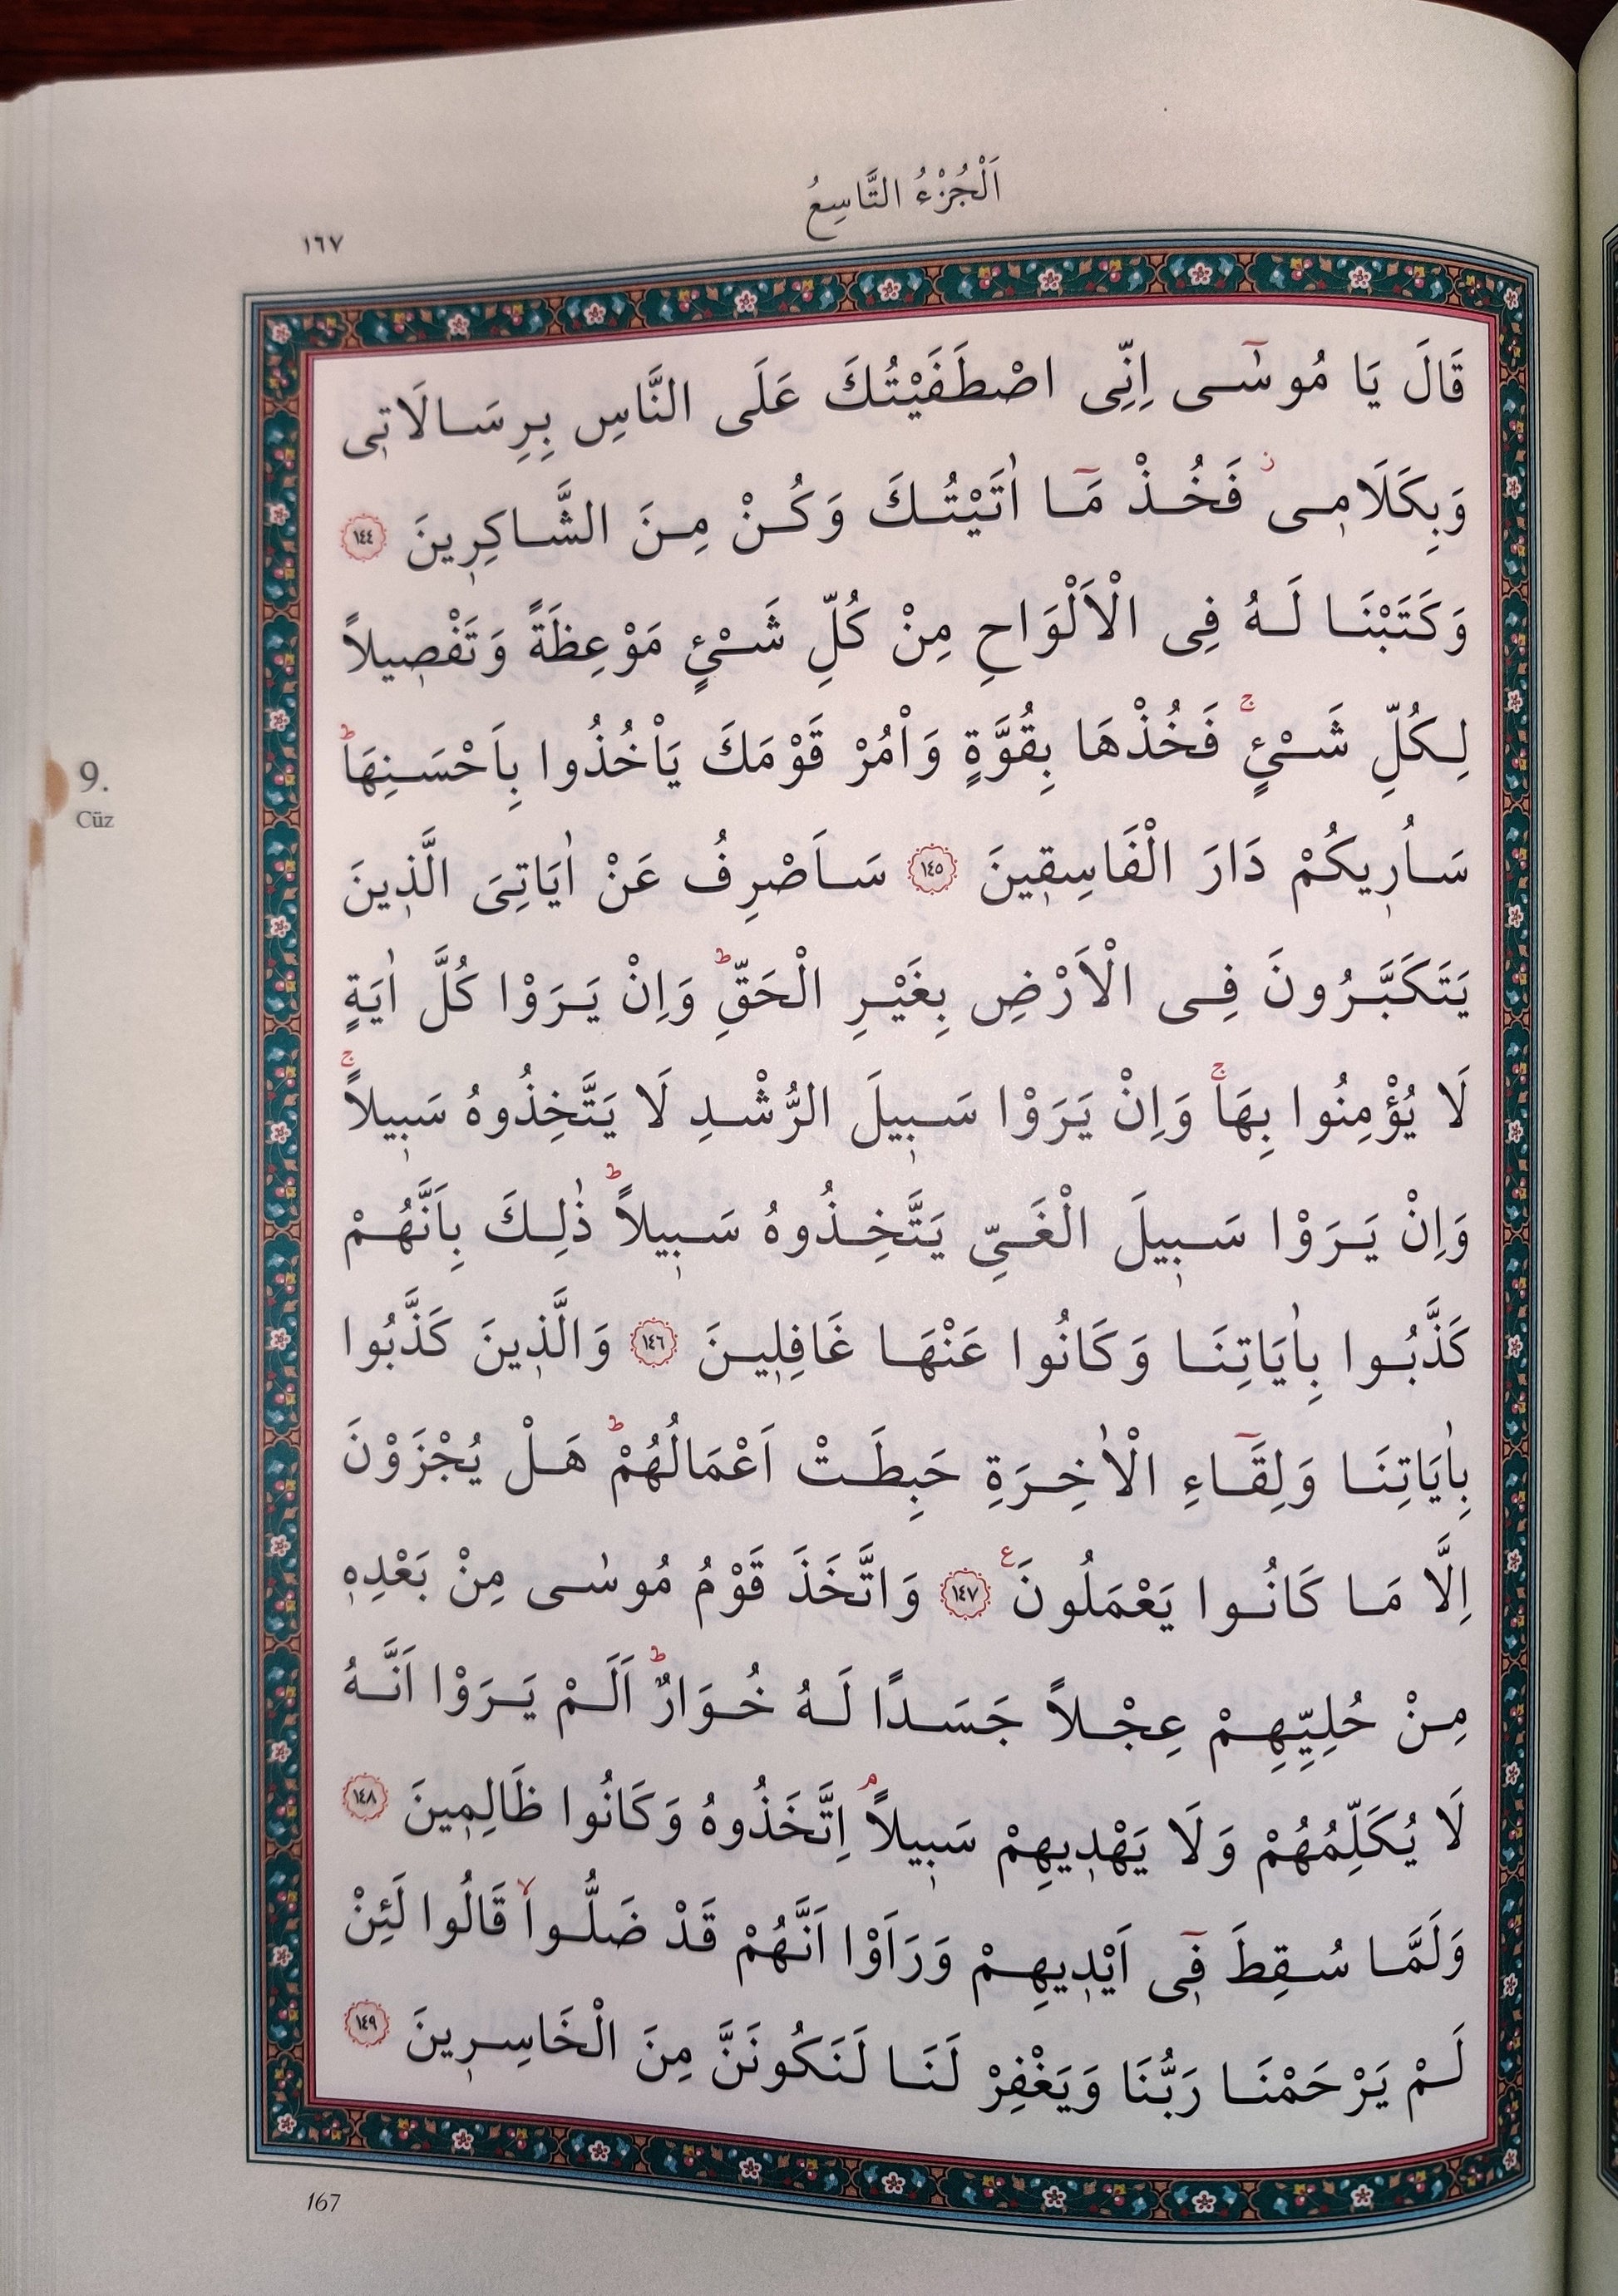 اَلْجُزْءُ التَّاسِعُ
١٦٧
قَالَ يَا مُوسٰٓى اِنِّى اصْطَفَيْتُكَ عَلَى النَّاسِ بِرِسَالَاتٖى
وَبِكَلَامٖىۘ فَخُذْ مَٓا اٰتَيْتُكَ وَكُنْ مِنَ الشَّاكِرٖينَ ١٤٤
وَكَتَبْنَا لَهُ فِى الْاَلْوَاحِ مِنْ كُلِّ شَىْئٍ مَوْعِظَةً وَتَفْصٖيلاً
لِكُلِّ شَىْئٍۚ فَخُذْهَا بِقُوَّةٍ وَاْمُرْ قَوْمَكَ يَاْخُذُوا بِاَحْسَنِهَاؕ
سَاُرٖيكُمْ دَارَ الْفَاسِقٖينَ ١٤٥ سَاَصْرِفُ عَنْ اٰيَاتِىَ الَّذٖينَ
يَتَكَبَّرُونَ فِى الْاَرْضِ بِغَيْرِ الْحَقِّؕ وَاِنْ يَرَوْا كُلَّ اٰيَةٍ
لَا يُؤْمِنُوا بِهَاۚ وَاِنْ يَرَوْا سَبٖيلَ الرُّشْدِ لَا يَتَّخِذُوهُ سَبٖيلاًۚ
وَاِنْ يَرَوْا سَبٖيلَ الْغَىِّ يَتَّخِذُوهُ سَبٖيلاًؕ ذٰلِكَ بِاَنَّهُمْ
كَذَّبُوا بِاٰيَاتِنَا وَكَانُوا عَنْهَا غَافِلٖينَ ١٤٦ وَالَّذٖينَ كَذَّبُوا
بِاٰيَاتِنَا وَلِقَٓاءِ الْاٰخِرَةِ حَبِطَتْ اَعْمَالُهُمْؕ هَلْ يُجْزَوْنَ
اِلَّا مَا كَانُوا يَعْمَلُونَ ع ١٤٧ وَاتَّخَذَ قَوْمُ مُوسٰى مِنْ بَعْدِهٖ
مِنْ حُلِيِّهِمْ عِجْلاً جَسَدًا لَهُ خُوَارٌؕ اَلَمْ يَرَوْا اَنَّهُ
لَا يُكَلِّمُهُمْ وَلَا يَهْدٖيهِمْ سَبٖيلاًۢ اِتَّخَذُوهُ وَكَانُوا ظَالِمٖينَ ١٤٨
وَلَمَّا سُقِطَ فٖٓى اَيْدٖيهِمْ وَرَاَوْا اَنَّهُمْ قَدْ ضَلُّواۙ قَالُوا لَئِنْ
لَمْ يَرْحَمْنَا رَبُّنَا وَيَغْفِرْ لَنَا لَنَكُونَنَّ مِنَ الْخَاسِرٖينَ ١٤٩
9.
Cüz
167